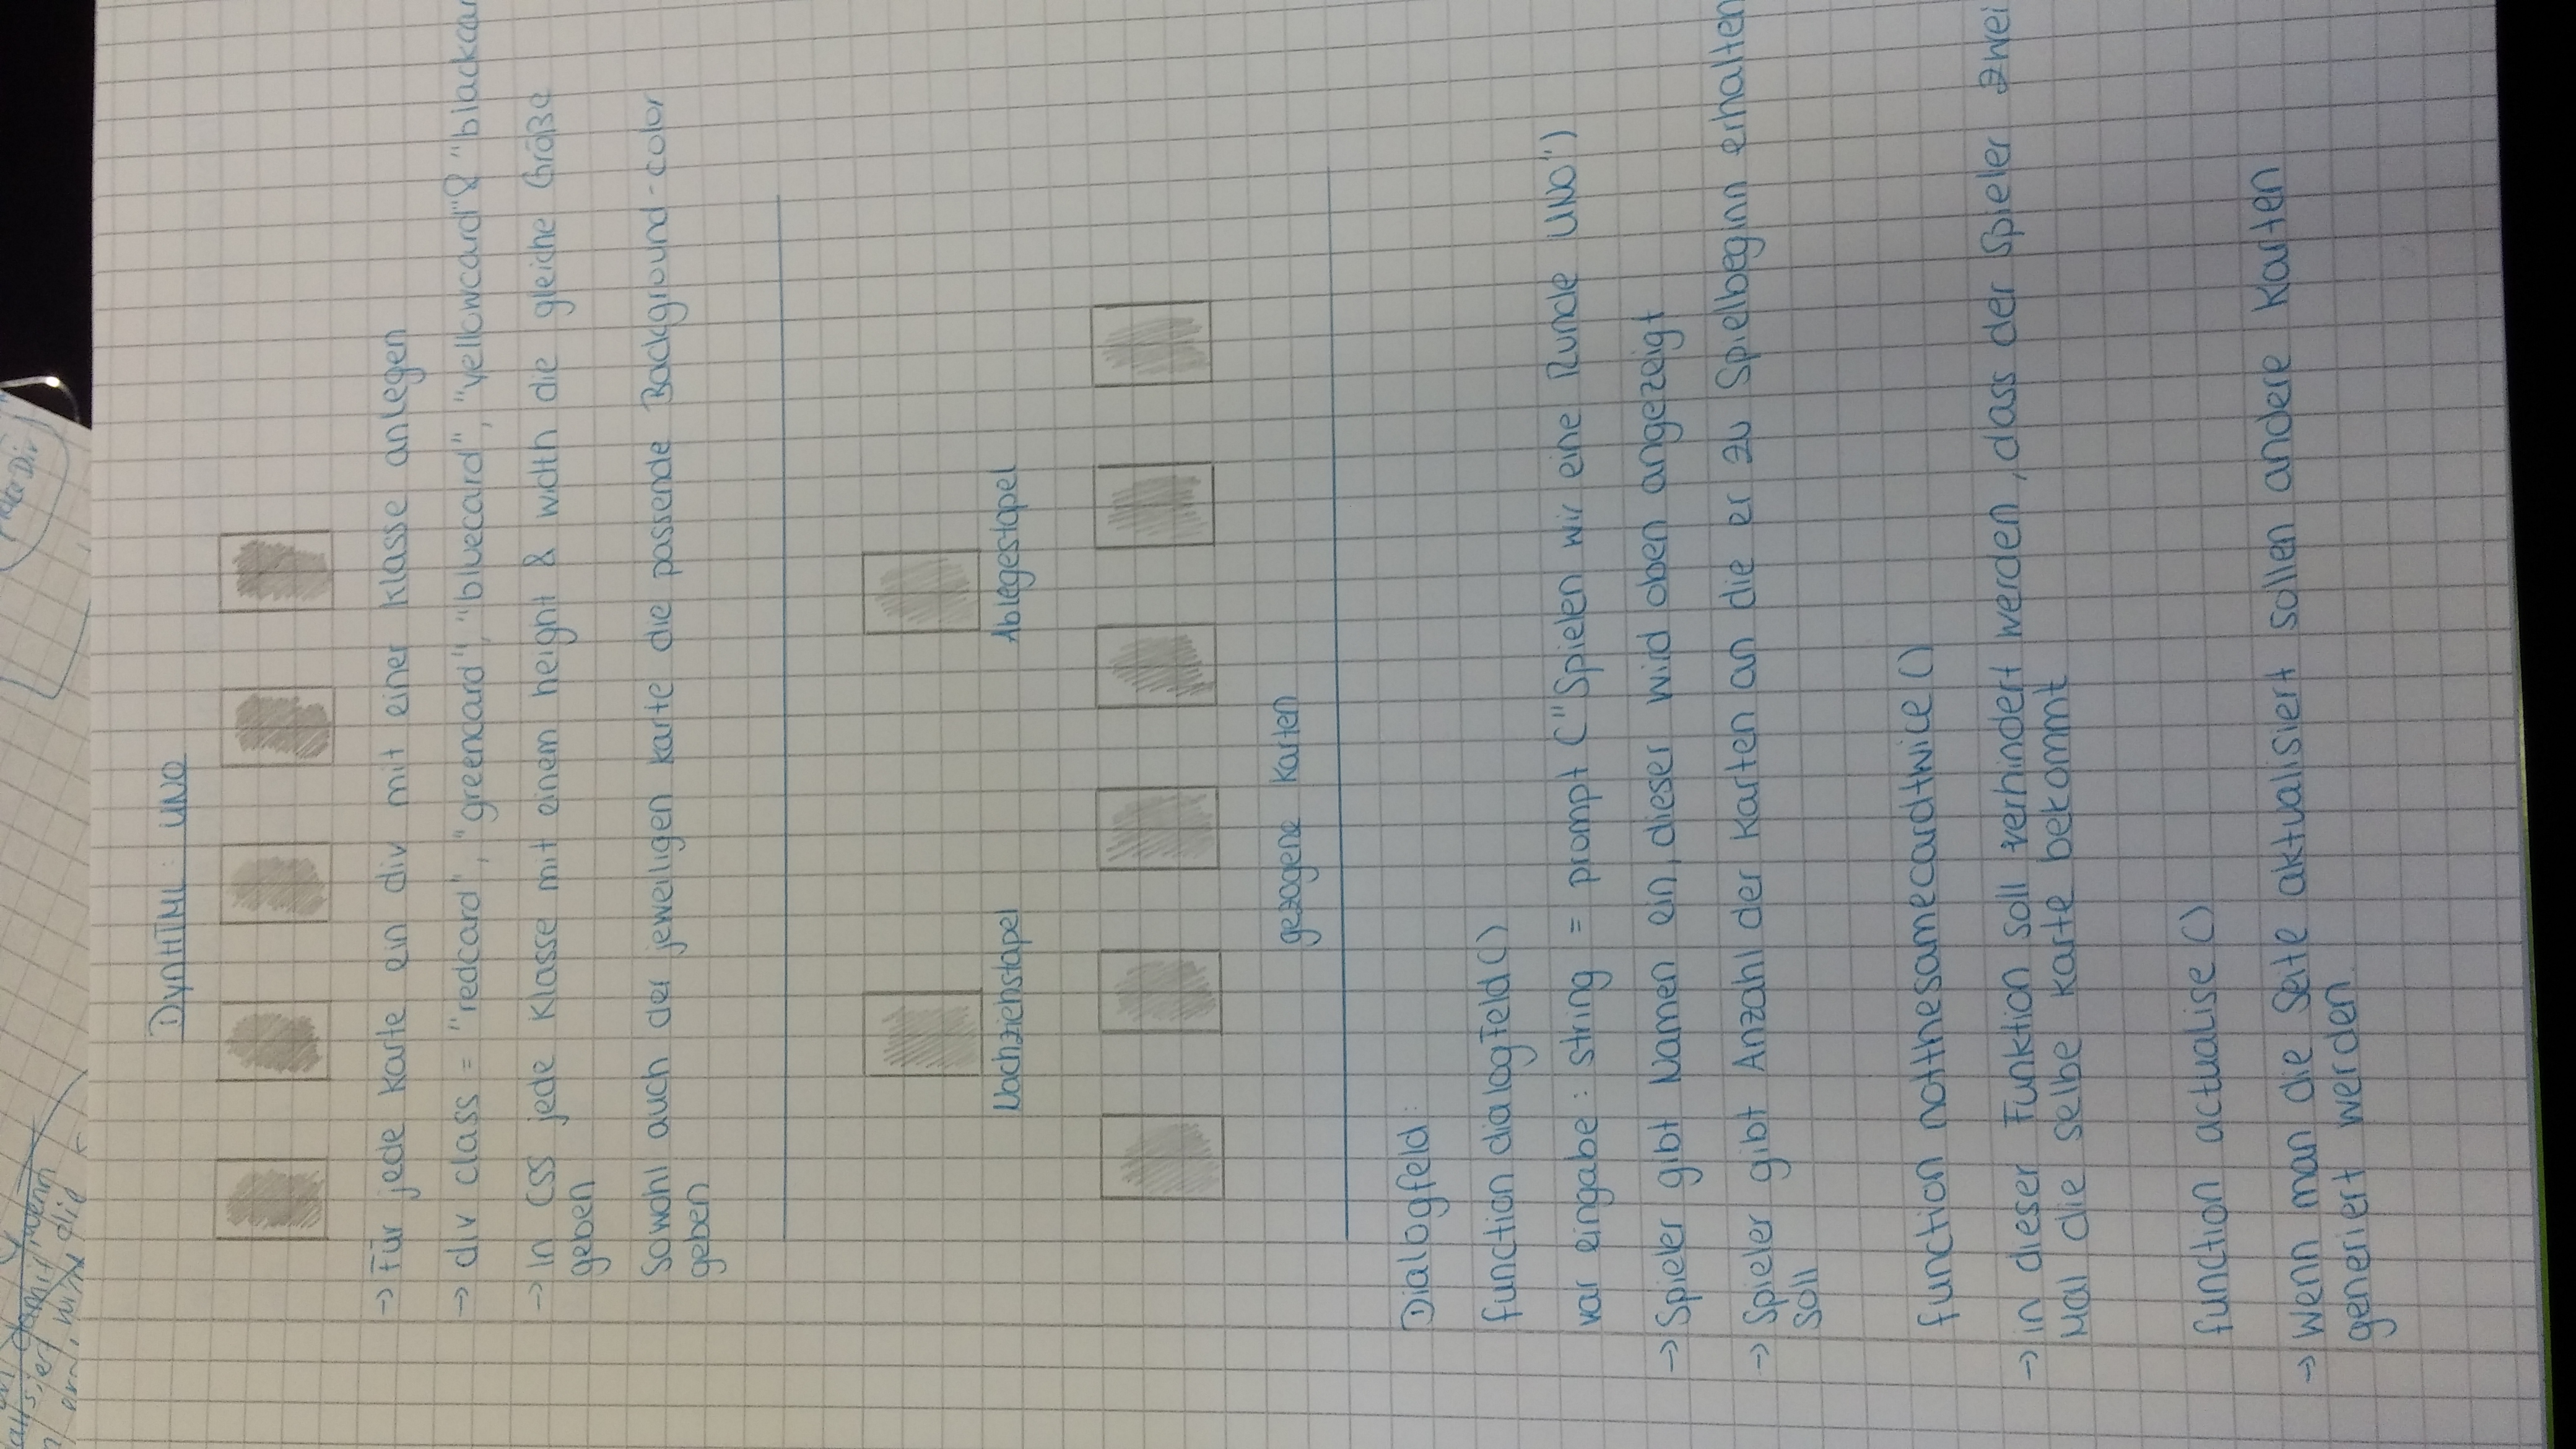 damit wenn
die
place Div
DynHTML: UNO
→ Für jede Karte ein div mit einer Klasse anlegen
→ div class = "redcard", "greencard", "bluecard", "yellowcard" & "blackcar
→ In CSS jede Klasse mit einem height & width die gleiche Größe
geben
Sowohl auch der jeweiligen Karte die passende Background-color
geben
Nachziehstapel Ablegestapel
gezogene Karten
Dialogfeld:
function dialogfeld()
var eingabe: string = prompt ("Spielen wir eine Runde UNO")
→ Spieler gibt Namen ein, dieser wird oben angezeigt
→ Spieler gibt Anzahl der Karten an die er zu Spielbeginn erhalten
soll
function notthesamecardtwice()
→ in dieser Funktion soll verhindert werden, dass der Spieler zwei
Mal die selbe Karte bekommt
function actualise()
→ Wenn man die Seite aktualisiert sollen andere Karten
generiert werden.